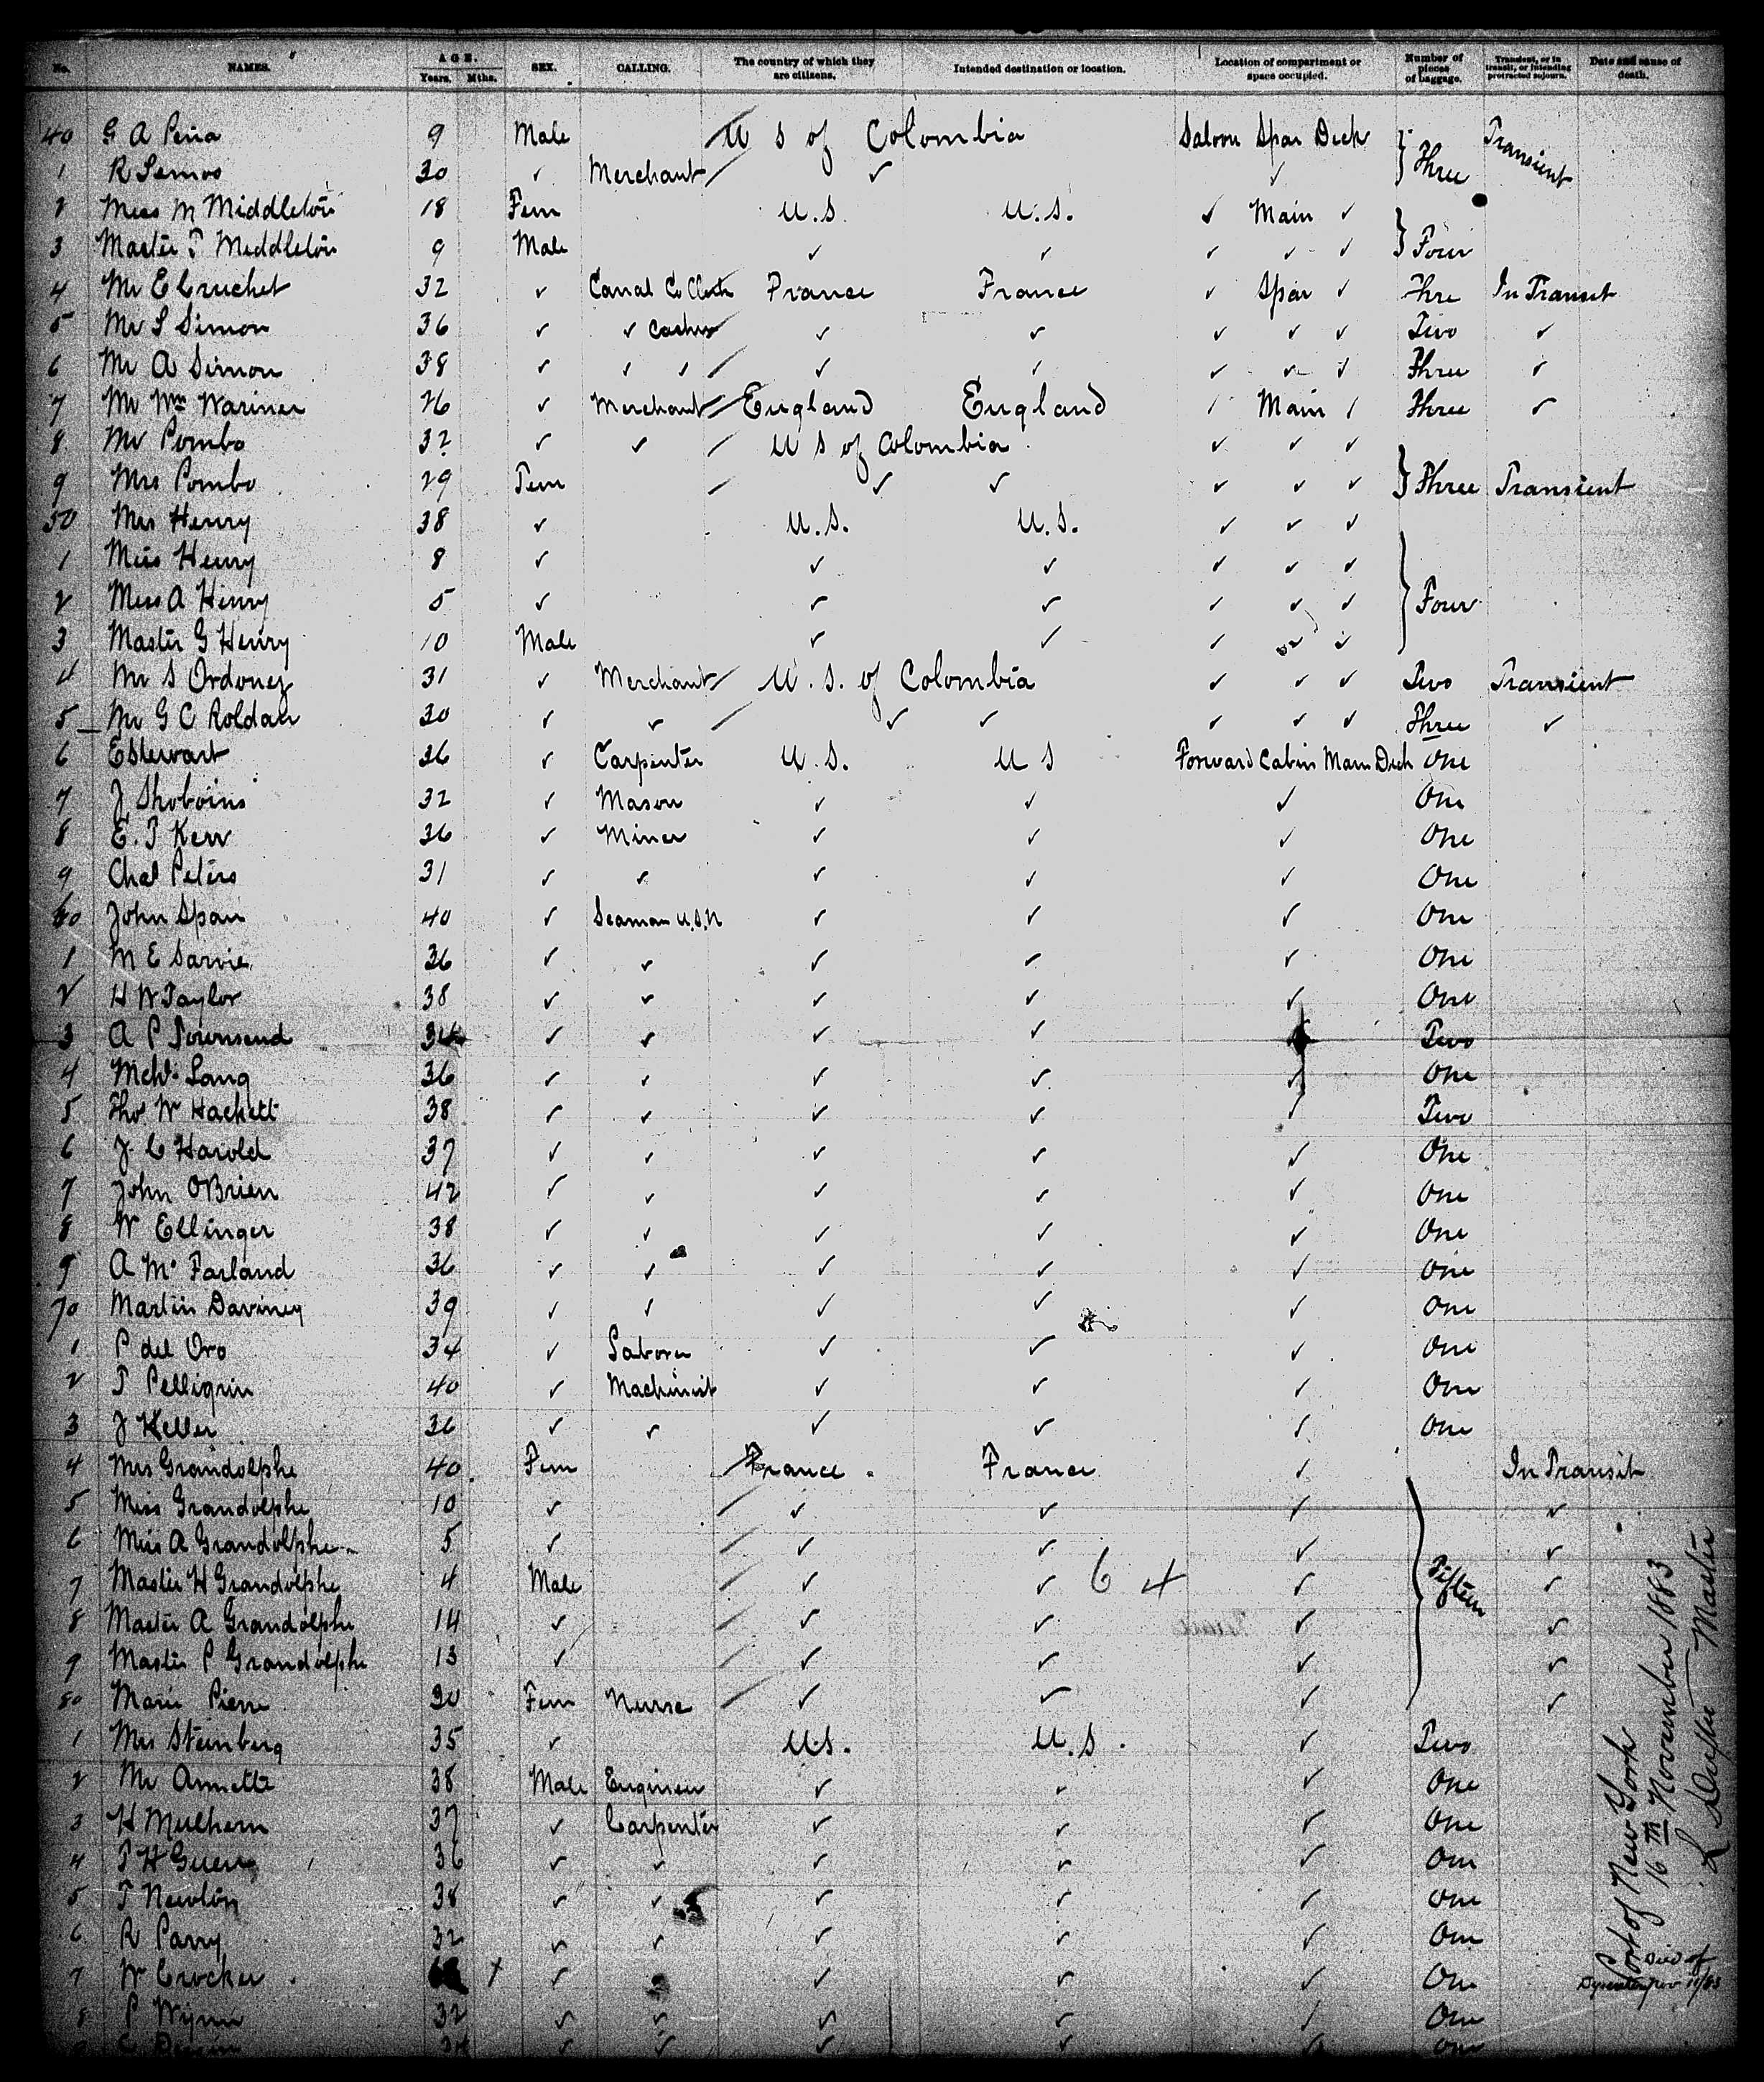 No. NAMES. AGE. Years. Mths. SEX. CALLING. The country of which they are citizens. Intended destination or location. Location of compartment or space occupied. Number of pieces of baggage. Transient, or in transit, or intending protracted sojourn. Date and cause of death.
40 G A Pena 9 Male U S of Colombia Saloon Spar Deck } Three Transient
1 R Lemos 30 ✓ Merchant ✓ ✓
2 Miss M Middleton 18 Fem U.S. U.S. ✓ Main ✓ } Four
3 Master T Middleton 9 Male ✓ ✓ ✓ ✓ ✓
4 Mr E Cruchet 32 ✓ Canal Co Clerk France France ✓ Spar ✓ Thre In Transit
5 Mr S Simon 36 ✓ ✓ Cashier ✓ ✓ ✓ ✓ ✓ Two ✓
6 Mr A Simon 38 ✓ ✓ ✓ ✓ ✓ ✓ ✓ ✓ Three ✓
7 Mr Wm Wariner 26 ✓ Merchant England England ✓ Main ✓ Three ✓
8 Mr Pombo 32 ✓ ✓ U S of Colombia ✓ ✓ ✓ } Three Transient
9 Mrs Pombo 29 Fem ✓ ✓ ✓ ✓ ✓
50 Mrs Henry 38 ✓ U.S. U.S. ✓ ✓ ✓ } Four
1 Miss Henry 8 ✓ ✓ ✓ ✓ ✓ ✓
2 Miss A Henry 5 ✓ ✓ ✓ ✓ ✓ ✓
3 Master G Henry 10 Male ✓ ✓ ✓ ✓ ✓
4 Mr S Ordonez 31 ✓ Merchant U.S. of Colombia ✓ ✓ ✓ Two Transient
5 Mr G C Roldan 30 ✓ ✓ ✓ ✓ ✓ ✓ ✓ Three ✓
6 E Stewart 36 ✓ Carpenter U.S. U S Forward Cabin Main Deck One
7 J Shoboins 32 ✓ Mason ✓ ✓ ✓ One
8 E. T Kerr 36 ✓ Miner ✓ ✓ ✓ One
9 Chas Peters 31 ✓ ✓ ✓ ✓ ✓ One
60 John Span 40 ✓ Seaman U.S.N ✓ ✓ ✓ One
1 M E Sarvie 36 ✓ ✓ ✓ ✓ ✓ One
2 H W Taylor 38 ✓ ✓ ✓ ✓ ✓ One
3 A P Townsend ✓ ✓ ✓ ✓ Two
4 McW. Lang 36 ✓ ✓ ✓ ✓ ✓ One
5 Thos W Hackett 38 ✓ ✓ ✓ ✓ ✓ Two
6 J. C Harold 37 ✓ ✓ ✓ ✓ ✓ One
7 John OBrien 42 ✓ ✓ ✓ ✓ ✓ One
8 W Ellinger 38 ✓ ✓ ✓ ✓ ✓ One
9 A Mc Farland 36 ✓ ✓ ✓ ✓ ✓ One
70 Martin Daviney 39 ✓ ✓ ✓ ✓ ✓ One
1 P del Oro 34 ✓ Laborer ✓ ✓ ✓ One
2 T Pelligrin 40 ✓ Machinist ✓ ✓ ✓ One
3 J Keller 36 ✓ ✓ ✓ ✓ ✓ One
4 Mrs Grandolphe 40 Fem France France ✓ } Fifteen In Transit
5 Miss Grandolphe 10 ✓ ✓ ✓ ✓ ✓
6 Miss A Grandolphe 5 ✓ ✓ ✓ ✓ ✓
7 Master H Grandolphe 4 Male ✓ ✓ 6 4 ✓ ✓
8 Master A Grandolphe 14 ✓ ✓ ✓ ✓ ✓
9 Master P Grandolphe 13 ✓ ✓ ✓ ✓ ✓
80 Marie Pierre 30 Fem Nurse ✓ ✓ ✓ ✓
1 Mrs Steinberg 35 ✓ U.S. U.S. ✓ Two
2 Mr Annette 38 Male Engineer ✓ ✓ ✓ One
3 H Mulhern 37 ✓ Carpenter ✓ ✓ ✓ One
4 T H Guern 36 ✓ ✓ ✓ ✓ ✓ One
5 T Newton 38 ✓ ✓ ✓ ✓ ✓ One
6 R Parry 32 ✓ ✓ ✓ ✓ ✓ One
7 W Crocker ✓ ✓ ✓ ✓ One Died of Dysentery Nov 11/83
8 P Wynn 32 ✓ ✓ ✓ ✓ ✓ One
✓ ✓ ✓ ✓ ✓ One
Port of New York
16th November 1883
Master